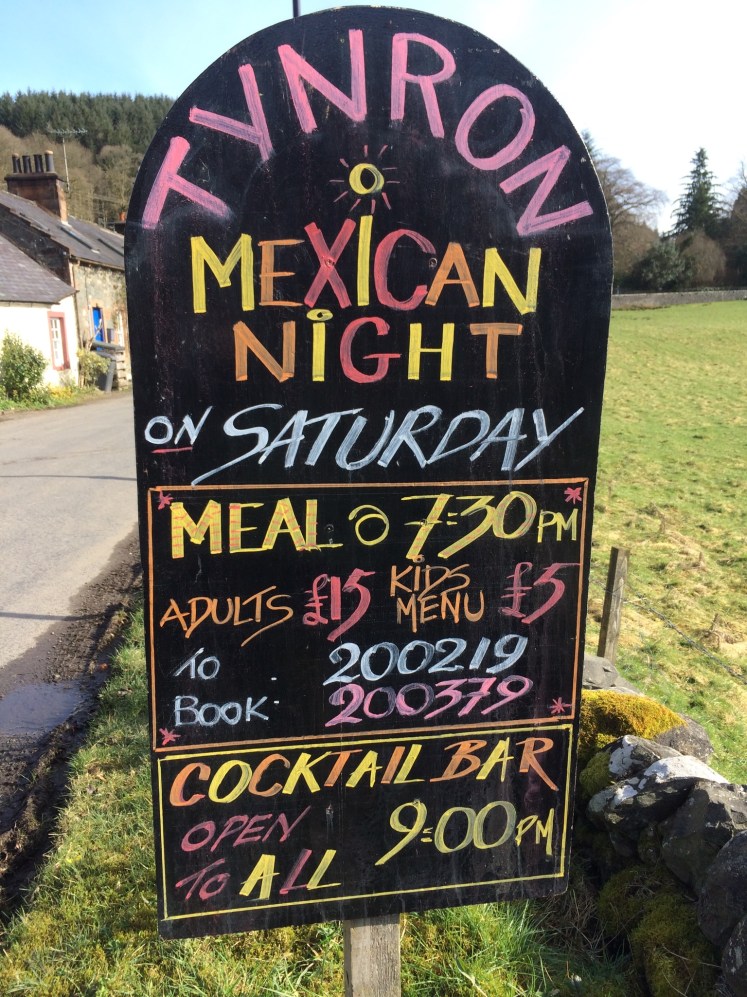 TYNRON
MEXICAN
NIGHT
ON SATURDAY
MEAL @ 7:30 PM
ADULTS £15 KIDS MENU £5
TO BOOK: 200219
200379
COCKTAIL BAR
OPEN TO ALL 9:00 PM